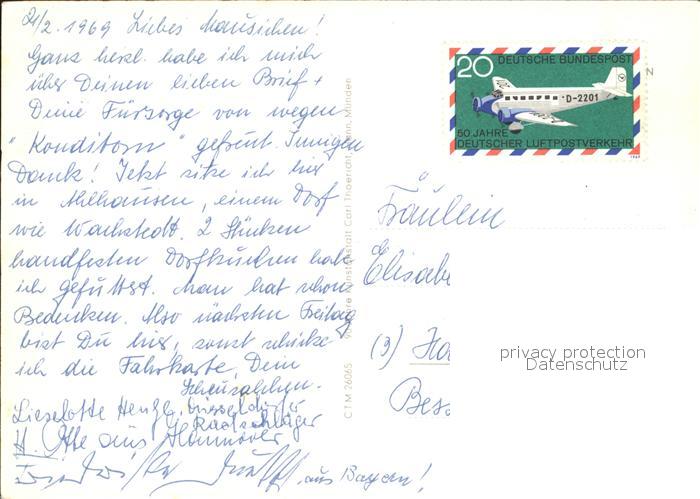 21/2. 1969 Liebes Mausichen!
Ganz herzl. habe ich mich
über Deinen lieben Brief +
Deine Fürsorge von wegen
"Konditorn" gefreut. Innigen
Dank! Jetzt sitze ich hier
in Ahlhausen, einem Dorf
wie Wachstedt. 2 Stücken
handfesten Dorfkuchen hab
ich gefuttert. Man hat schon
Bedenken. Also nächsten Freitag
bist Du hier, sonst schicke
ich die Fahrkarte. Dein
Scheusälchen.
Lieselotte
Ratschläger
H. Otte aus Hannover
aus Bayern!
C.T.M 26065
Carl Thoericht, Hann. Münden
20 DEUTSCHE BUNDESPOST
D-2201
50 JAHRE
DEUTSCHER LUFTPOSTVERKEHR
1969
N
Fräulein
Elisabe
(3) Ha
Bess
privacy protection
Datenschutz